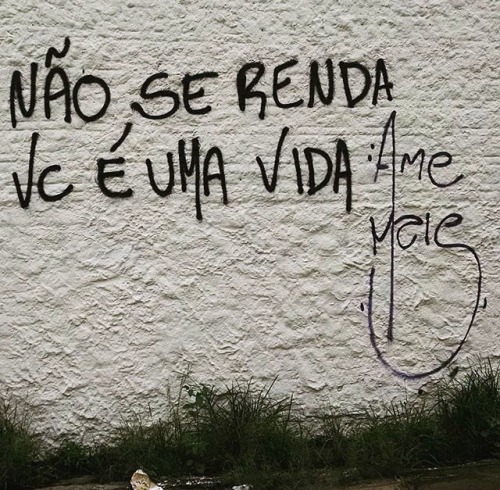 NÃO SE RENDA
VC É UMA VIDA
:Ame
Mais